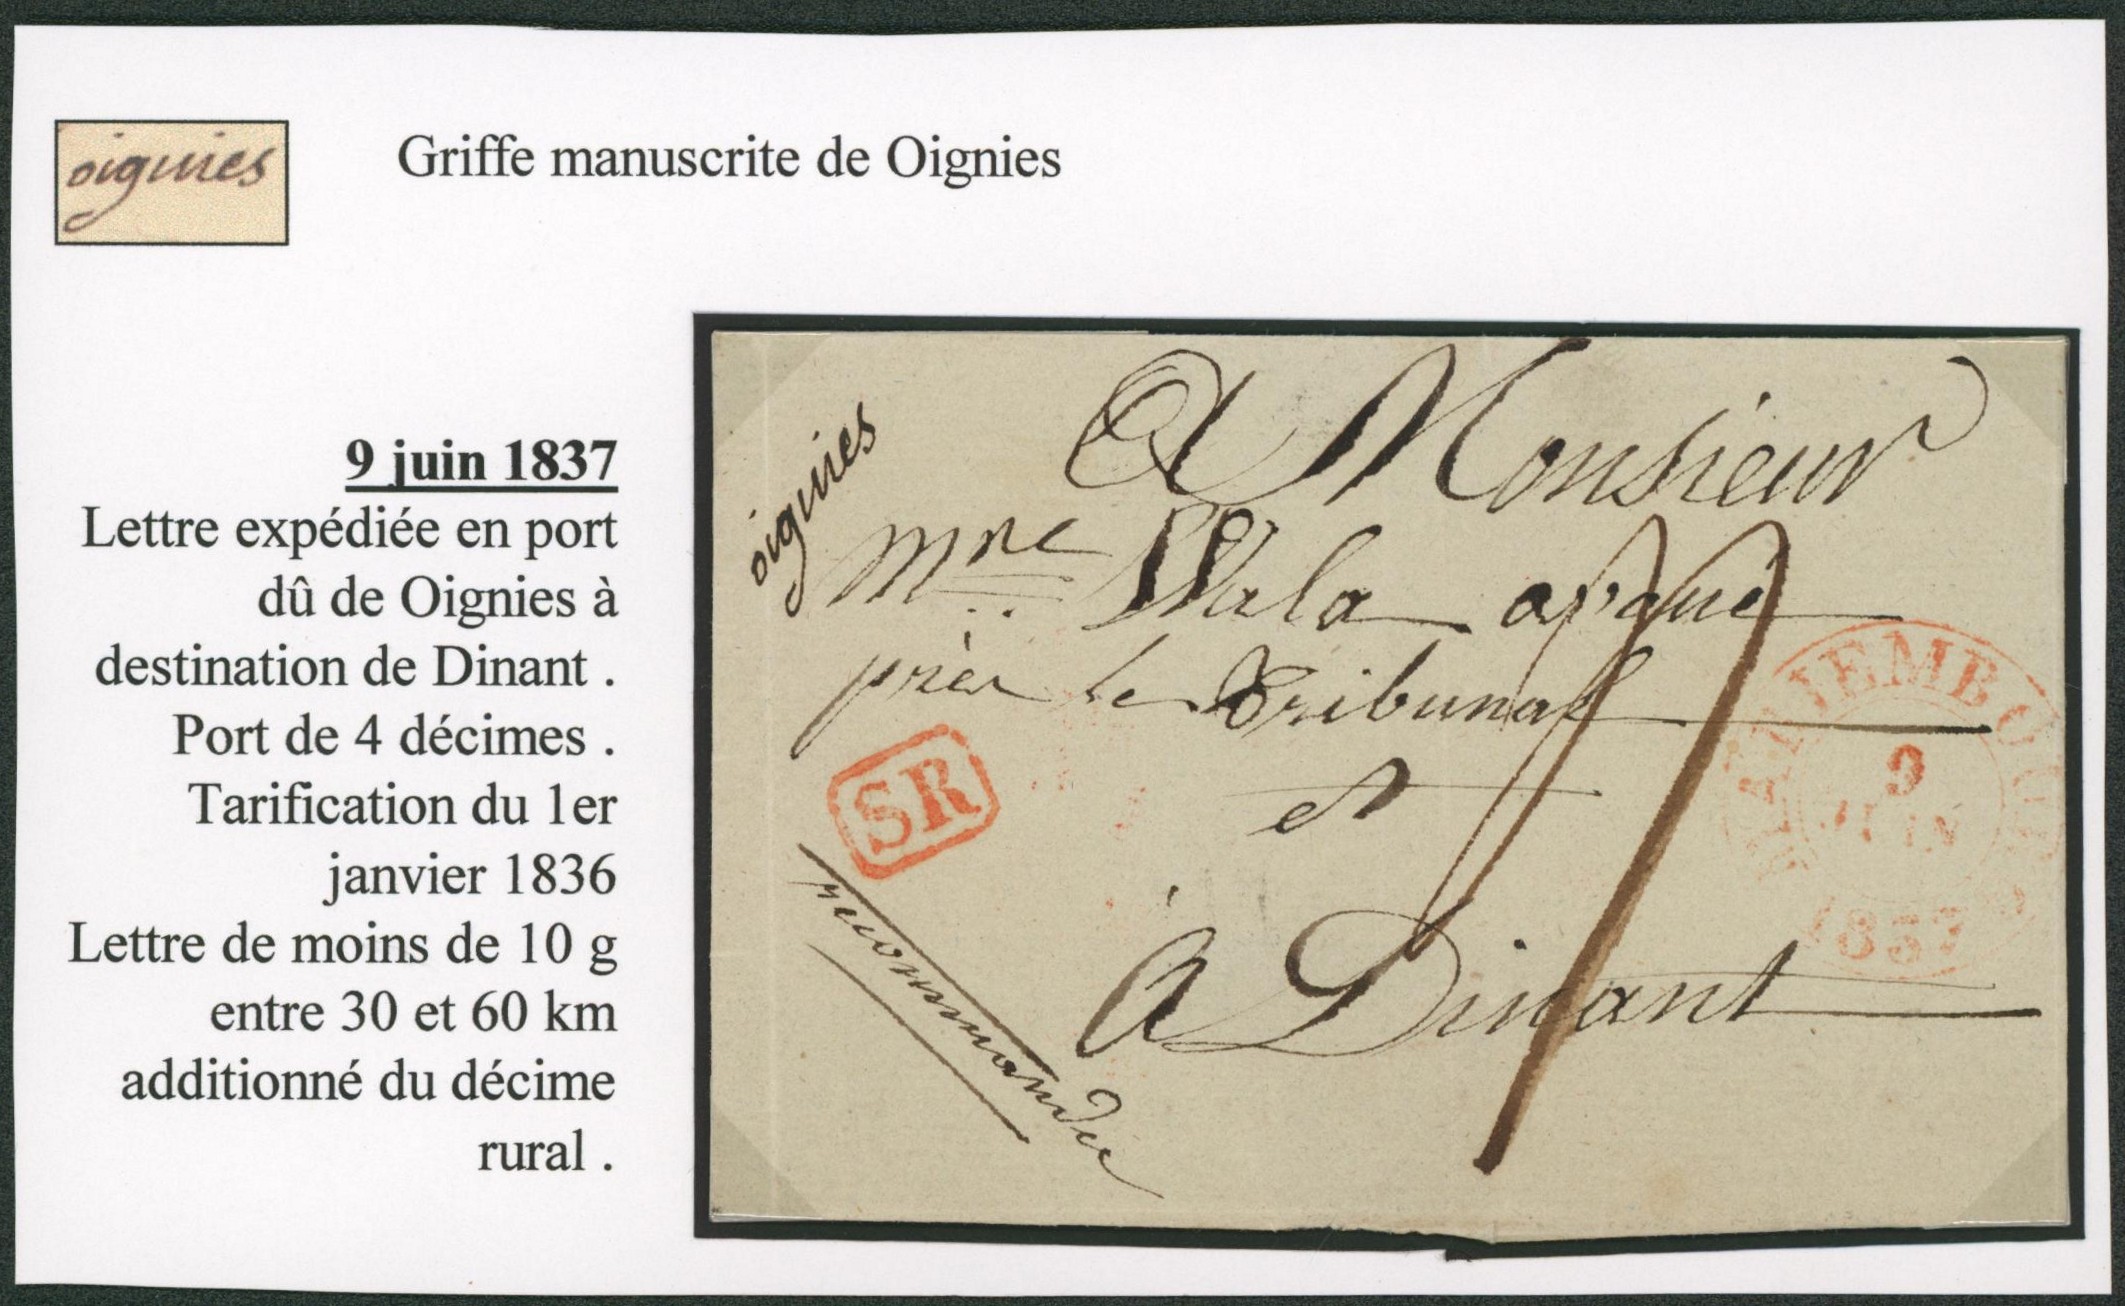 oignies
Griffe manuscrite de Oignies
9 juin 1837
Lettre expédiée en port
dû de Oignies à
destination de Dinant .
Port de 4 décimes .
Tarification du 1er
janvier 1836
Lettre de moins de 10 g
entre 30 et 60 km
additionné du décime
rural .
oignies
A Monsieur
Mre Wala avoué
près le Tribunal
et
à Dinant
SR
recommandée
MARIEMBOURG
9
JUIN
1837